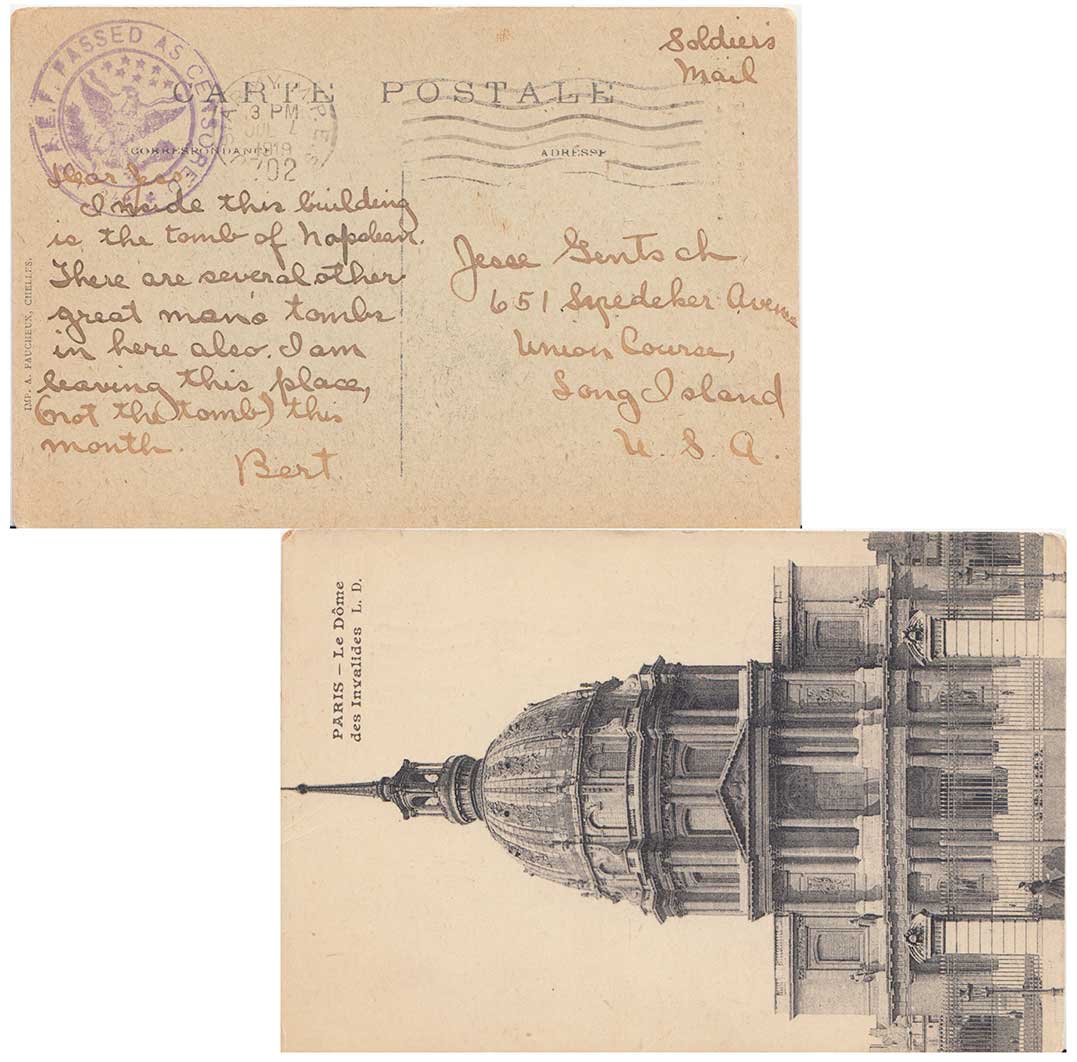 Soldier's
Mail
A.E.F. PASSED AS CENSORED
CARTE POSTALE
3 PM
JUL
1919
702
CORRESPONDANCE
ADRESSE
Dear Jess
Inside this building
is the tomb of Napolean.
There are several other
great mans tombs
in here also. I am
leaving this place,
(not the tomb) this
month.
Bert
Jesse Gentsch
651 Snedeker Avenue
Union Course,
Long Island
U. S. A.
IMP. A. FAUCHEUX, CHELLES.
PARIS – Le Dôme
des Invalides L. D.